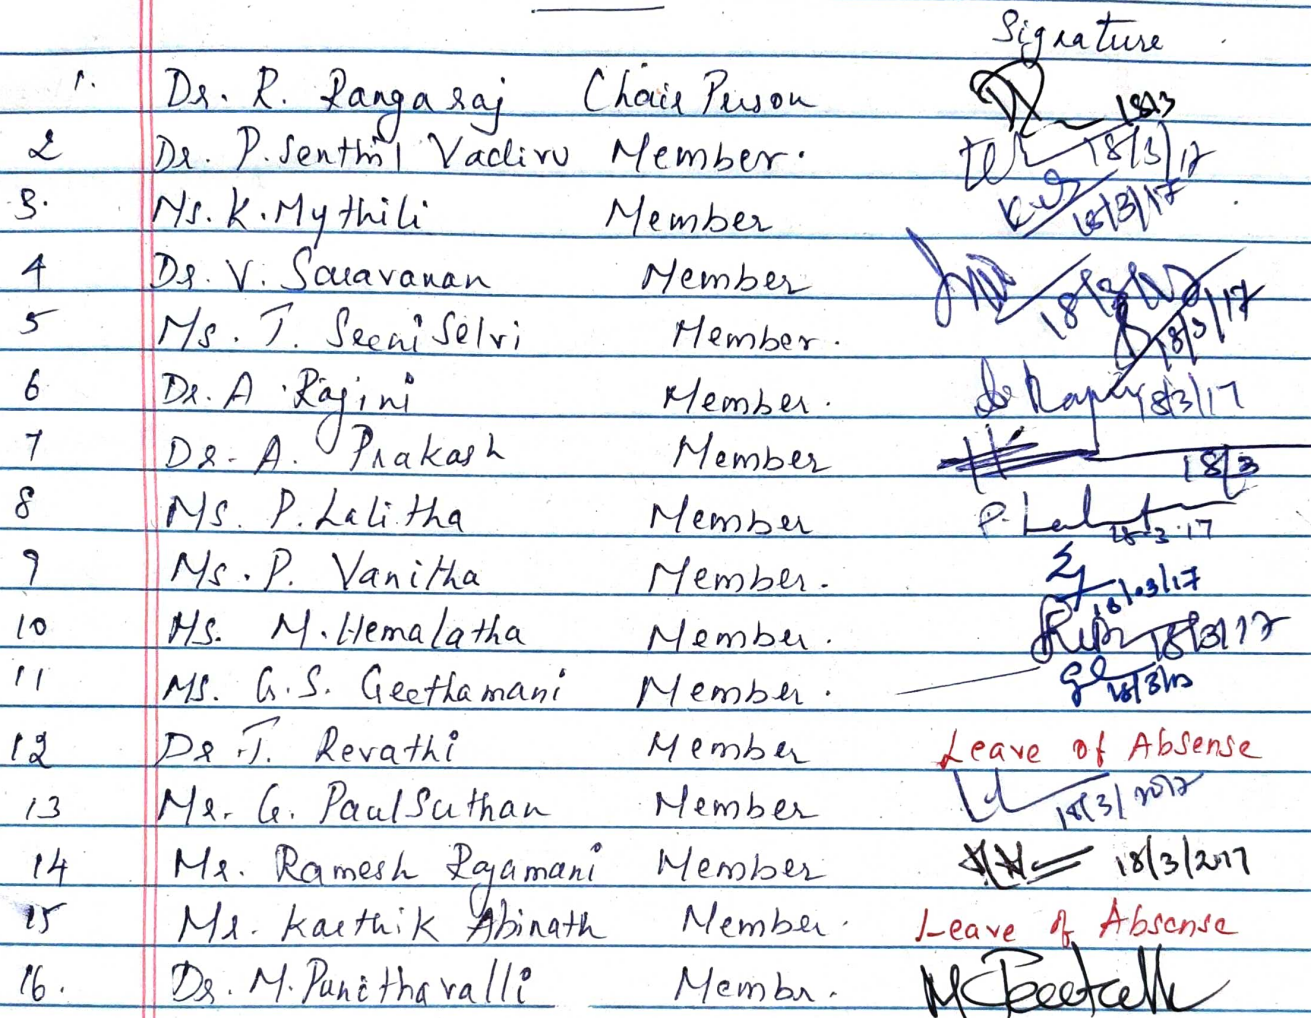 Signature
1. Dr. R. Rangaraj Chair Person 18/3
2 Dr. P. Senthil Vadivu Member. 18/3/17
3. Ms. K. Mythili Member 18/3/17
4 Dr. V. Saravanan Member
5 Ms. T. Seeni Selvi Member. 18/3/17
6 Dr. A. Rajini Member. 18/3/17
7 Dr. A. Prakash Member 18/3
8 Ms. P. Lalitha Member 18.3.17
9 Ms. P. Vanitha Member. 18/03/17
10 Ms. M. Hemalatha Member. 18/3/17
11 Ms. G. S. Geethamani Member.
12 Dr. T. Revathi Member Leave of Absense
13 Mr. G. Paul Suthan Member 18/3/2017
14 Mr. Ramesh Rajamani Member 18/3/2017
15 Mr. Karthik Abinath Member. Leave of Absense
16. Dr. M. Punithavalli Membr.